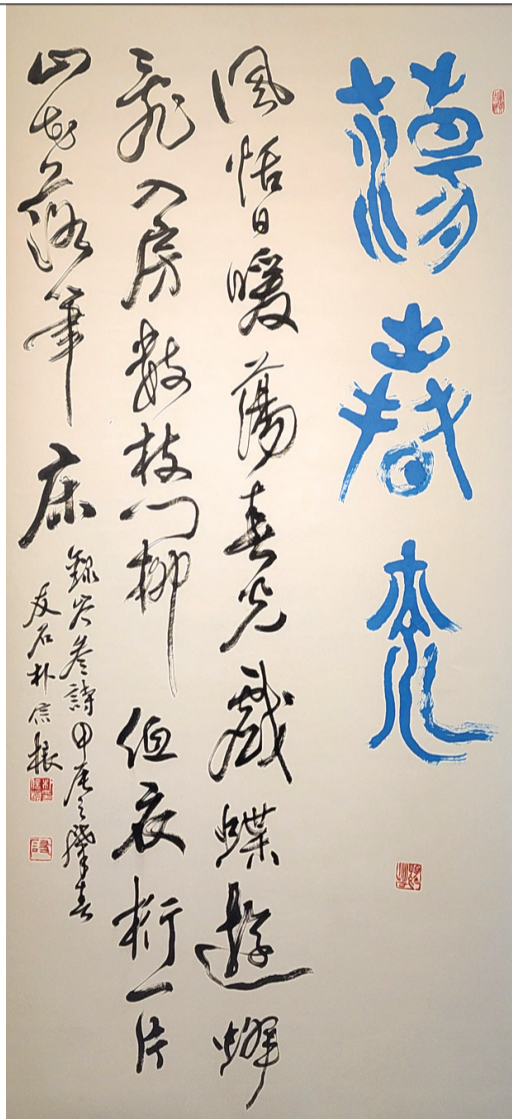 蕩春光
風恬日暖蕩春光戲蝶遊蜂
亂入房數枝門柳低衣桁一片
山花落筆床
錄岑參詩甲辰之肇春
友石朴信根